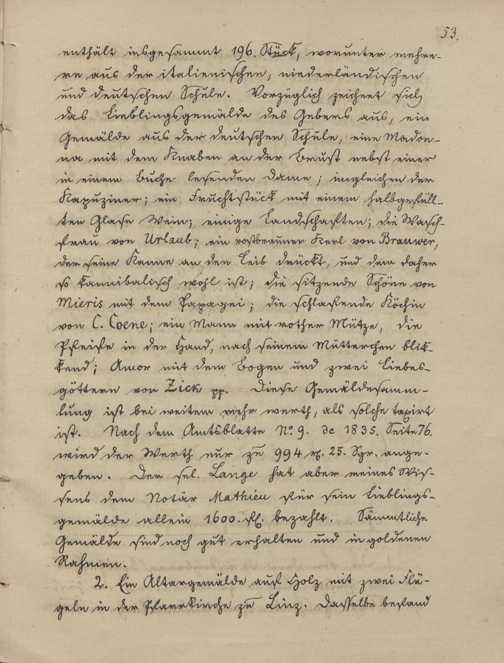 53.
enthält insgesammt 196. Stück, worunter mehre-
re aus der italienischen, niederländischen
und deutschen Schule. Vorzüglich zeichnet sich
das Lieblingsgemälde des Gebers aus, ein
Gemälde aus der deutschen Schule, eine Madon-
na mit dem Knaben an der Brust nebst einer
in einem Buche lesenden Dame; imgleichen der
Kapuziner; ein Fruchtstück mit einem halbgefüll-
ten Glase Wein; einige Landschaften; die Wasch-
frau von Urlaub; ein rothbrauner Kerl von Brauwer,
der seine Kanne an den Leib drückt, und dem daher
so kannibalisch wohl ist; die sitzende Schöne von
Mieris mit dem Papagei; die schlafende Köchin
von C. Coene; ein Mann mit rother Mütze, die
Pfeife in der Hand, nach seinem Mütterchen blik-
kend; Amor mit dem Bogen und zwei Liebes-
göttern von Zick pp. Diese Gemäldesamm-
lung ist bei weitem mehr werth, als solche taxirt
ist. Nach dem Amtsblatte No. 9. de 1835. Seite 76.
wird der Werth nur zu 994 rth. 25. Sgr. ange-
geben. Der sel. Lange hat aber meines Wis-
sens dem Notar Mathieu für sein Lieblings-
gemälde allein 1600. fl. bezahlt. Sämmtliche
Gemälde sind noch gut erhalten und in goldenen
Rahmen.
2. Ein Altargemälde auf Holz mit zwei Flü-
geln in der Pfarrkirche zu Linz. Dasselbe befand